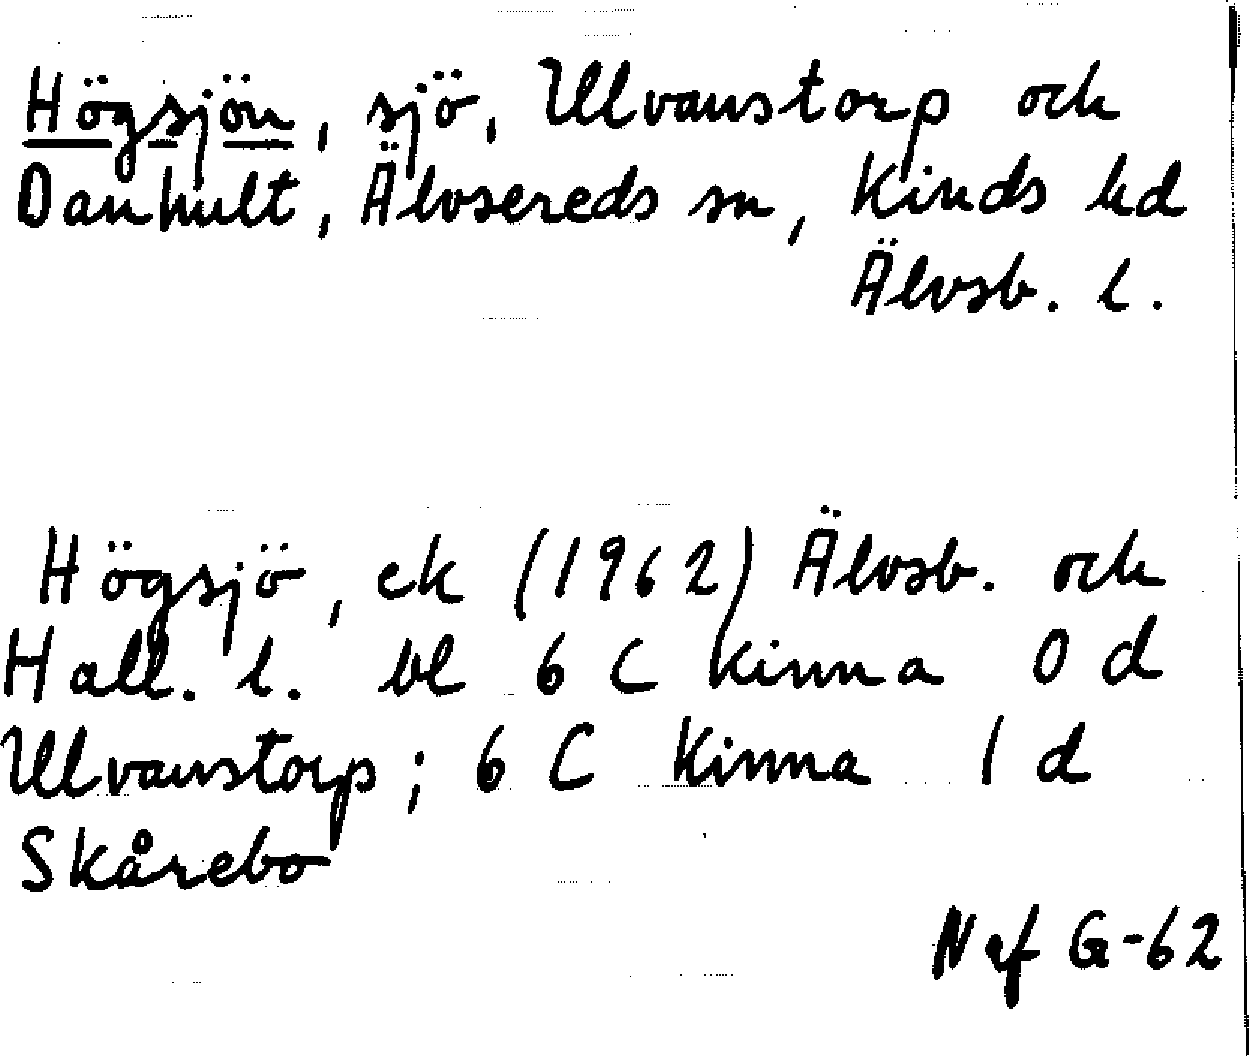 Högsjön, sjö, Ulvanstorp och
Danhult, Älvsereds sn, Kinds hd
Älvsb. l.
Högsjö, ek (1962) Älvsb. och
Hall. l. bl 6 C Kinna 0 d
Ulvanstorp; 6 C Kinna 1 d
Skårebo
Naf G-62